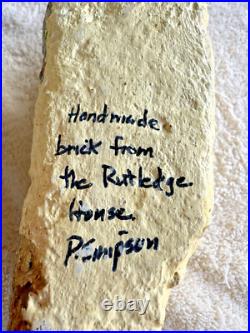 Handmade
brick from
the Rutledge
House.
P. Simpson